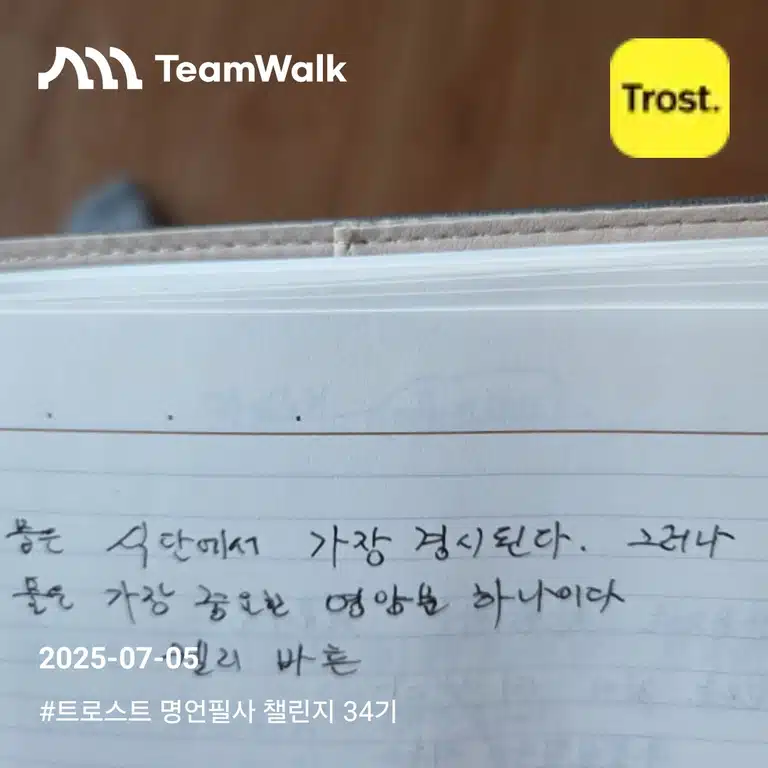 TeamWalk
Trost.
물은 식단에서 가장 경시된다. 그러나
물은 가장 중요한 영양분 하나이다
2025-07-05
바흔
#트로스트 명언필사 챌린지 34기